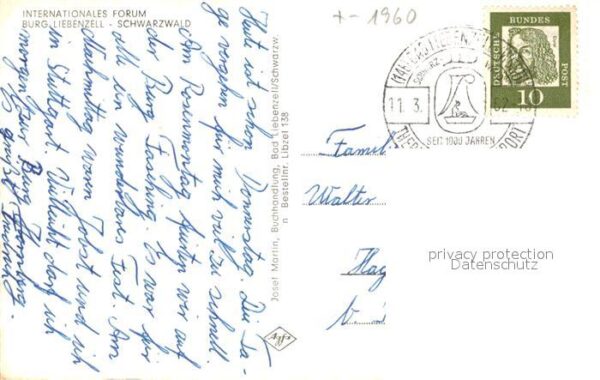 INTERNATIONALES FORUM
BURG LIEBENZELL - SCHWARZWALD
+- 1960
Heut ist schon Donnerstag. Die Ta-
ge vergehn für mich viel zu schnell.
Am Rosenmontag feierten wir auf
der Burg Fasching. Es war für
alle ein wunderbares Fest. Am
Nachmittag waren Jobst und ich
in Stuttgart. Vielleicht darf ich
morgen zur Burg
grüßt
Josef Martin, Buchhandlung, Bad Liebenzell/Schwarzw.
n Bestellnr. Libzel 138
Agfa
(14a) BAD LIEBENZELL
SCHWARZWALD
11.3.
62-18
SEIT 1000 JAHREN
DEUTSCHE
BUNDES
POST
10
Famil
Walter
Hag
privacy protection
Datenschutz